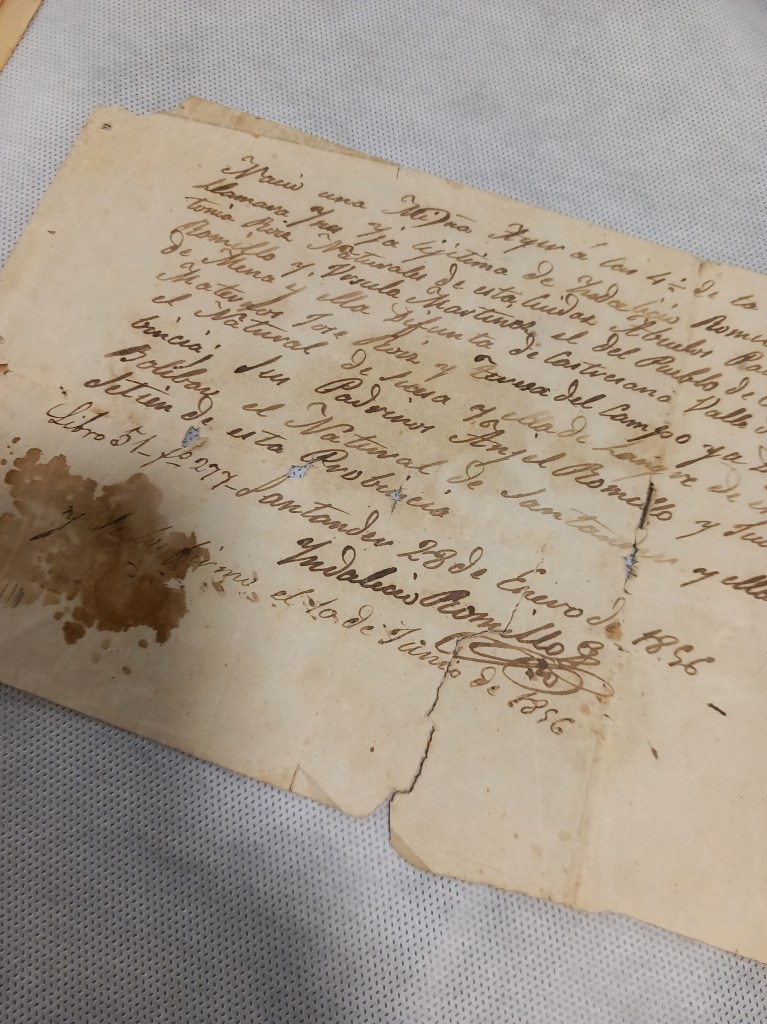 Nacio una Niña Ayer á las 4 de la
llamara Yja lejitima de Yndalicio Rome
tonia Roiz Naturales de esta Ciudad Abuelos
Romillo y Ursula Martinez el del Pueblo de
de Mena y ella Difunta de Castresana Valle
Maternos Jose Roiz y Teresa del Campo ya
el Natural de y ella de Langre de
bincia; Sus Padrinos Anjel Romillo y
Bolibar el Natural de Santander y ella
Setien de esta Probincia
Libro 51 fo 277 Santander 28 de Enero de 1856
Yndalicio Romillo
y Se el 10 de Junio de 1856